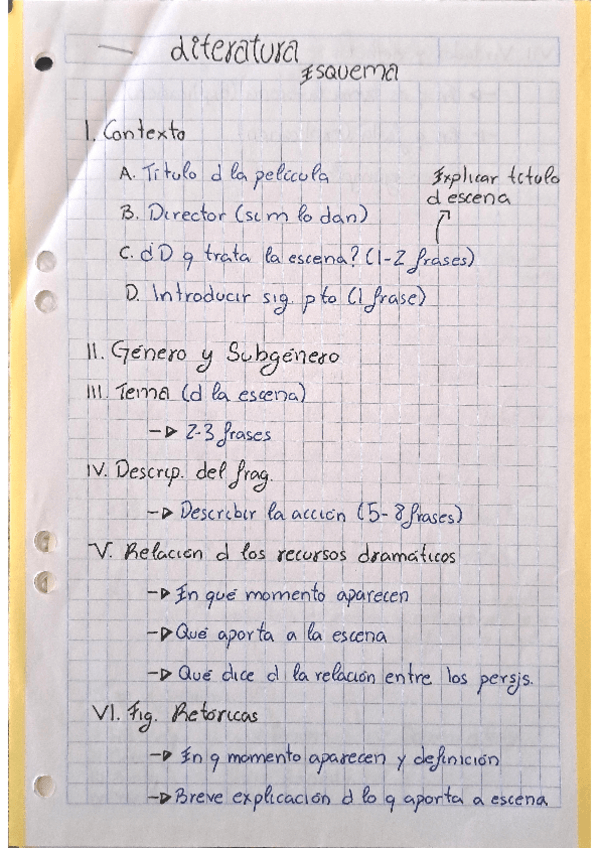 Literatura
Esquema
I. Contexto
A. Título d la película
Explicar título
d escena
B. Director (si m lo dan)
C. d D q trata la escena? (1-2 frases)
D. Introducir sig. pto (1 frase)
II. Género y Subgénero
III. Tema (d la escena)
→ 2-3 frases
IV. Descrip. del frag.
→ Describir la acción (5-8 frases)
V. Relación d los recursos dramáticos
→ En qué momento aparecen
→ Qué aporta a la escena
→ Qué dice d la relación entre los persjs.
VI. Fig. Retóricas
→ En q momento aparecen y definición
→ Breve explicación d lo q aporta a escena